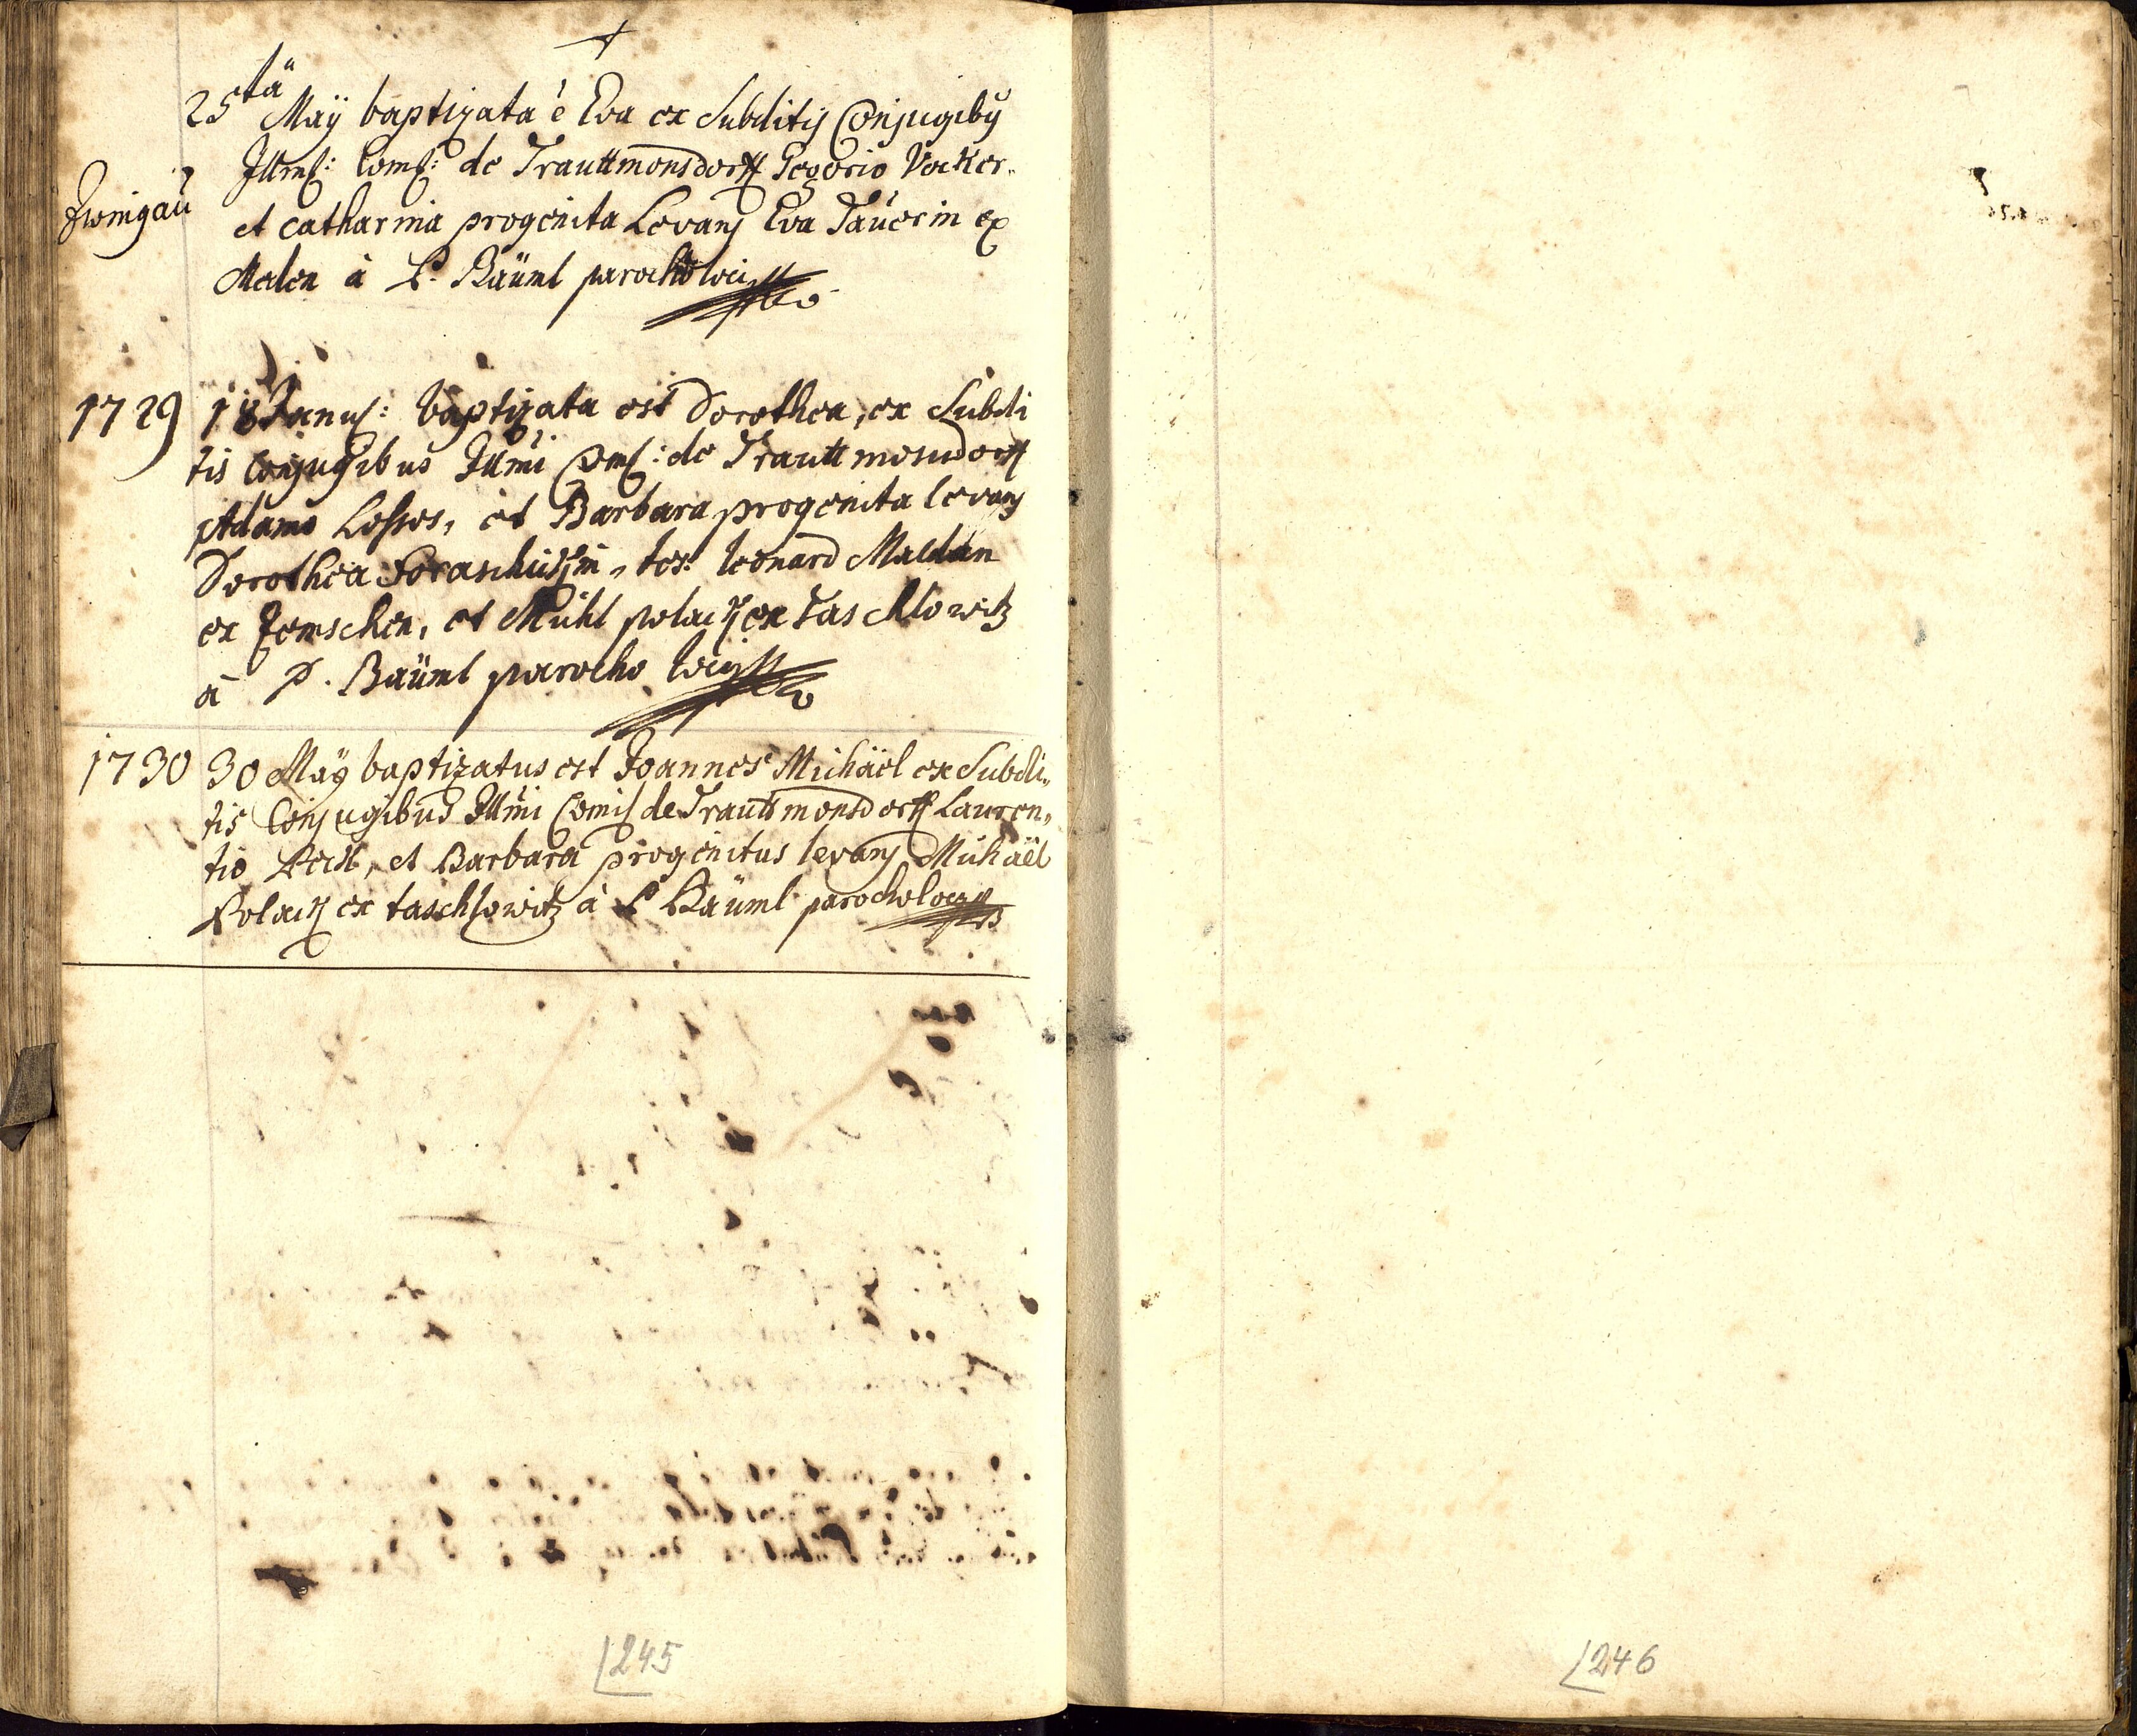 25tä Maÿ baptizata è Eva ex Subditis Conjugibq
Illmi: Comi: de Trauttmonsdorff Gegorio Vocker
Zwinigaü
et Catharina progenita Levans Eva Taüerin ex
à P. Baüml parocho loci
1729 18 Janu: baptizata est Dorothea, ex Subdi
tis Conjugibus Illmi Com: de Trauttmonsdorff
Adamo et Barbara progenita levans
Dorothea tes: Leonard
ex et Michl polack ex Taschlowitz
à P. Baüml parocho loci
1730 30 Maÿ baptizatus est Joannes Michäel ex Subdi„
tis Conjugibus Illmi Comi de Trauttmonsdorff Lauren„
tio et Barbara progenitus levans Michäel
Polack ex taschlowitz à P Baüml parocho loci
245
246